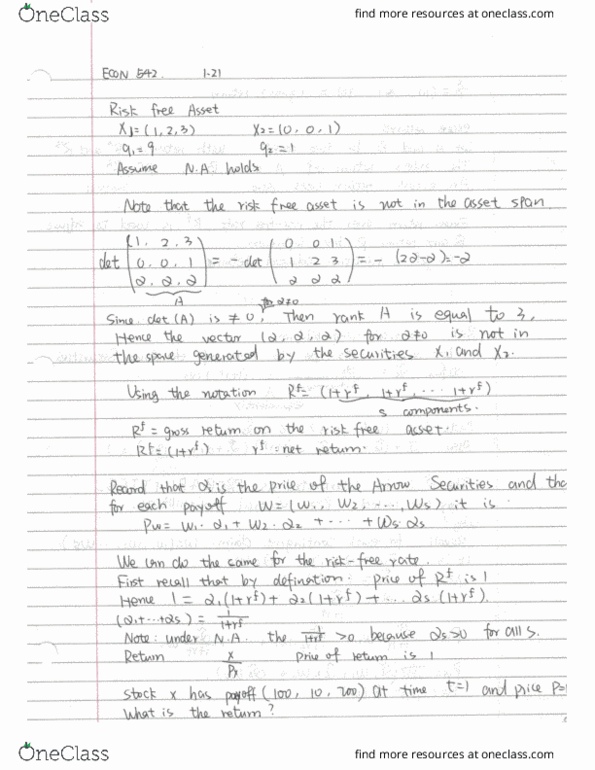 OneClass
find more resources at oneclass.com
ECON 542. 1-21
Risk free Asset
X1=(1,2,3) X2=(0,0,1)
q1=9 q2=1
Assume N.A holds
Note that the risk free asset is not in the asset span
det (1, 2, 3 / 0, 0, 1 / 2, 2, 2) = - det (0 0 1 / 1 2 3 / 2 2 2) = - (22-2)=-2
A
Since det(A) is ≠ 0, Then rank A is equal to 3,
2≠0
Hence the vector (2, 2, 2) for 2≠0 is not in
the space generated by the securities X1 and X2.
Using the notation Rf=(1+rf, 1+rf, ... 1+rf)
s components.
Rf = gross return on the risk free asset.
Rf=(1+rf) rf=net return.
Record that αs is the price of the Arrow Securities and tha
for each payoff W=(W1, W2, ..., Ws) it is
Pw= W1·α1+W2·α2+...+Ws·αs
We can do the came for the risk-free rate.
First recall that by defination. price of Rf is 1
Heme 1= α1(1+rf)+α2(1+rf)+...αs(1+rf).
(α1+...+αs)=1/(1+rf)
Note: under N.A. the 1/(1+rf) >0 because αs>0 for all s.
Return x/Px price of return is 1
stock x has payoff (100, 10, 200) at time t=1 and price P=
What is the return?
OneClass
find more resources at oneclass.com